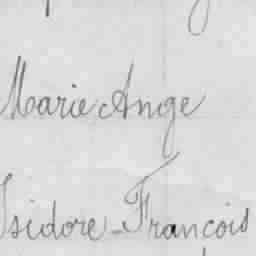 Marie Ange
Isidore-François